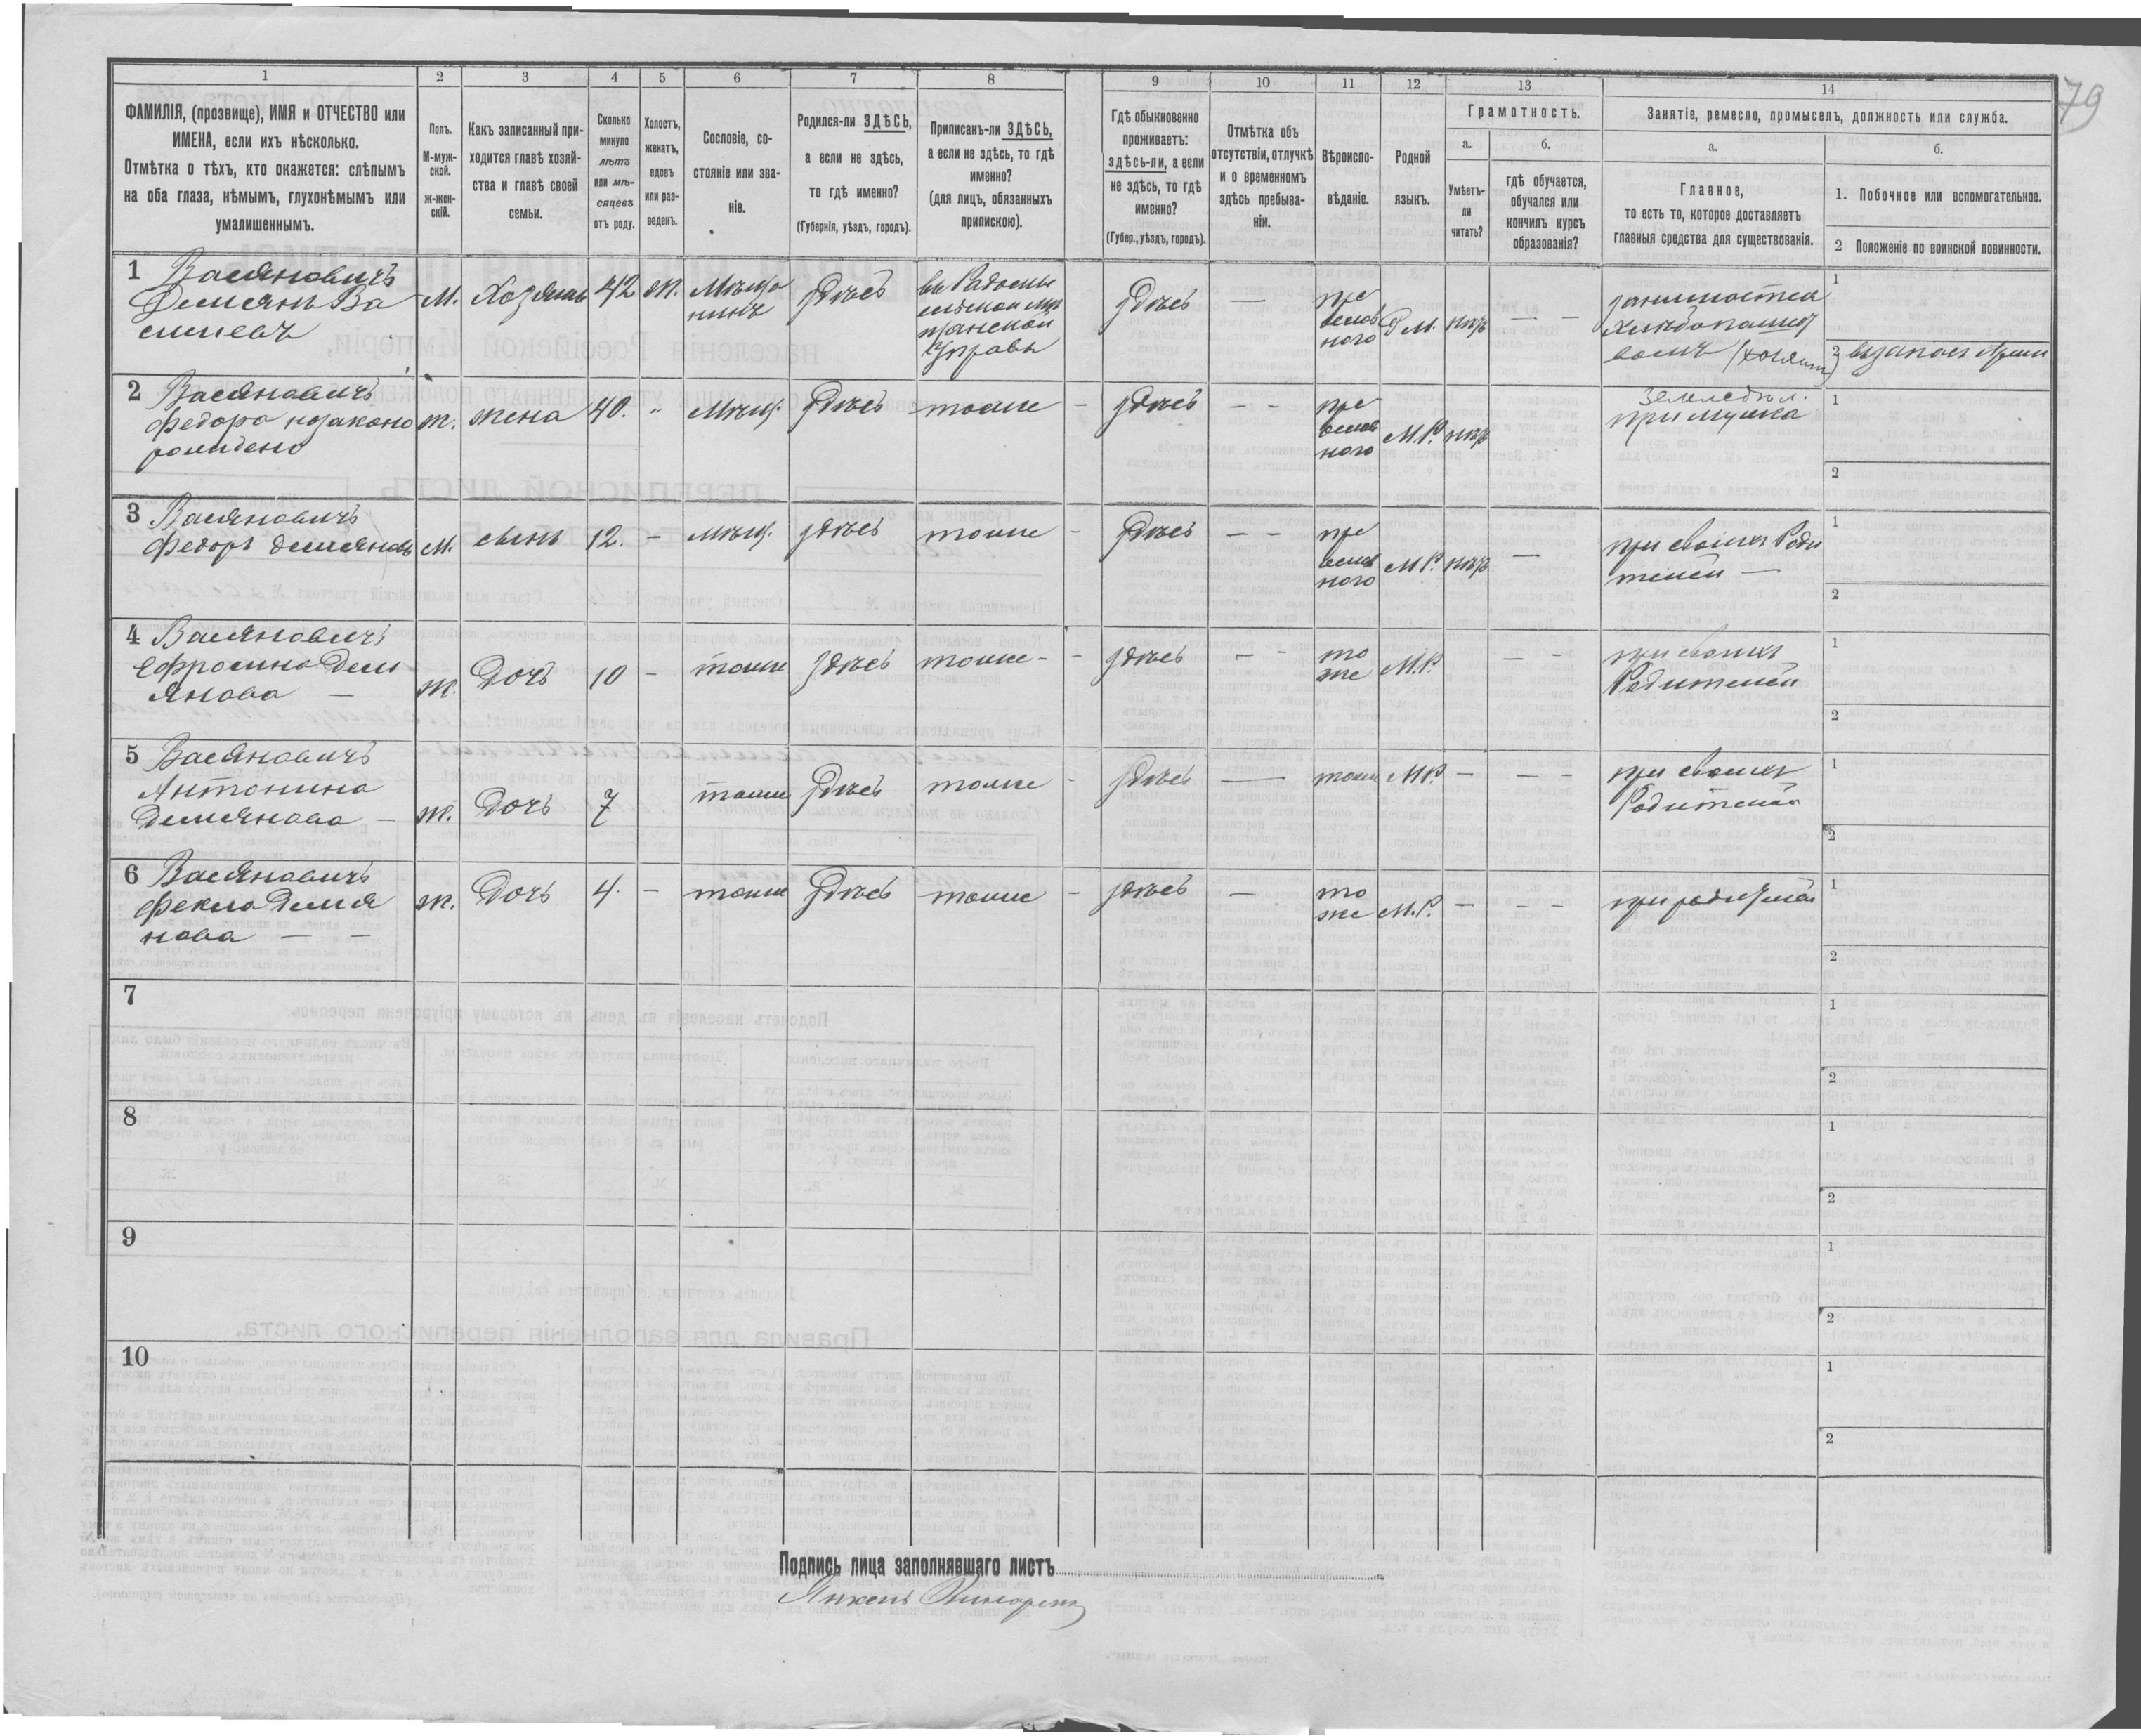 79
1 2 3 4 5 6 7 8 9 10 11 12 13 14
ФАМИЛІЯ, (прозвище), ИМЯ и ОТЧЕСТВО или
ИМЕНА, если ихъ нѣсколько.
Отмѣтка о тѣхъ, кто окажется: слѣпымъ
на оба глаза, нѣмымъ, глухонѣмымъ или
умалишеннымъ.
Полъ.
М-муж-
ской.
ж-жен-
скій.
Какъ записанный при-
ходится главѣ хозяй-
ства и главѣ своей
семьи.
Сколько
минуло
лѣтъ
или мѣ-
сяцевъ
отъ роду.
Холостъ,
женатъ,
вдовъ
или раз-
веденъ.
Сословіе, со-
стояніе или зва-
ніе.
Родился-ли ЗДѢСЬ,
а если не здѣсь,
то гдѣ именно?
(Губернія, уѣздъ, городъ).
Приписанъ-ли ЗДѢСЬ,
а если не здѣсь, то гдѣ
именно?
(для лицъ, обязанныхъ
припискою).
Гдѣ обыкновенно
проживаетъ:
здѣсь-ли, а если
не здѣсь, то гдѣ
именно?
(Губер., уѣздъ, городъ).
Отмѣтка объ
отсутствіи, отлучкѣ
и о временномъ
здѣсь пребыва-
ніи.
Вѣроиспо-
вѣданіе.
Родной
языкъ.
Грамотность.
а.
Умѣетъ-
ли
читать?
б.
гдѣ обучается,
обучался или
кончилъ курсъ
образованія?
Занятіе, ремесло, промыселъ, должность или служба.
а.
Главное,
то есть то, которое доставляетъ
главныя средства для существованія.
б.
1. Побочное или вспомогательное.
2 Положеніе по воинской повинности.
1 Васяновичъ
Демсянъ Ва
силiевъ
М. Хозяинъ 42 Ж.
Мѣща
нинъ
здѣсь
въ Радомы
сльской Мѣ
щанской
Управы
здѣсь —
пре
вслов
ного
нѣт — —
занимается
хлѣбопашест
вомъ (хозяин)
1
2 въ запасѣ Арміи
2 Васяновичъ
Федора незаконо
рожидено
ж. жена 40. " Мѣщ. здѣсь тоже — здѣсь — —
пре
вслов
ного
М.Р. нѣт
Земледѣл.
при мужа
1
2
3 Васяновичъ
Федоръ Демсяновъ
М. сынъ 12. — Мѣщ. здѣсь тоже — здѣсь — —
пре
вслов
ного
М.Р. нѣт —
при своихъ Роди
телей —
1
2
4 Васяновичъ
Ефросина Деми
янова —
ж. Дочь 10 — тоже здѣсь тоже — — здѣсь — —
то
же
М.Р. — —
при своихъ
Родителей
1
2
5 Васяновичъ
Антонина
Демсянова —
ж. Дочь 7 тоже здѣсь тоже — здѣсь — тоже М.Р. — — —
при своихъ
Родителей
1
2
6 Васяновичъ
Фекла Демія
нова — —
ж. Дочь 4. — тоже здѣсь тоже — здѣсь —
то
же
М.Р. — — —
при родителей
1
2
7
1
2
8
1
2
9
1
2
10
1
2
Подпись лица заполнявшаго листъ